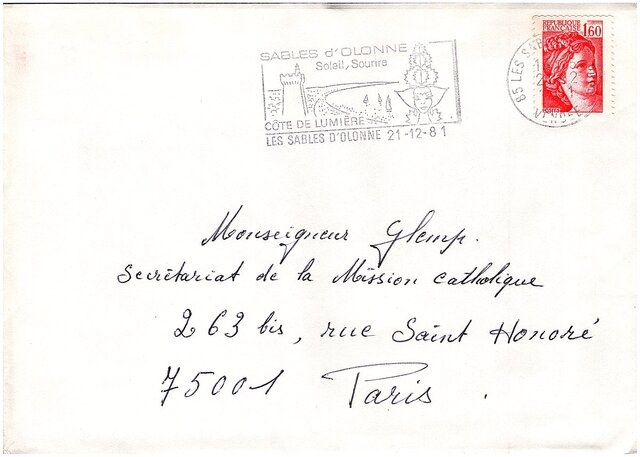 SABLES d'OLONNE
Soleil, Sourire
CÔTE DE LUMIÈRE
LES SABLES D'OLONNE 21-12-81
RÉPUBLIQUE
FRANÇAISE
1,60
85 LES SAB
VENDÉE
Monseigneur Glemp.
Secrétariat de la Mission catholique
263 bis, rue Saint Honoré
75001 Paris.